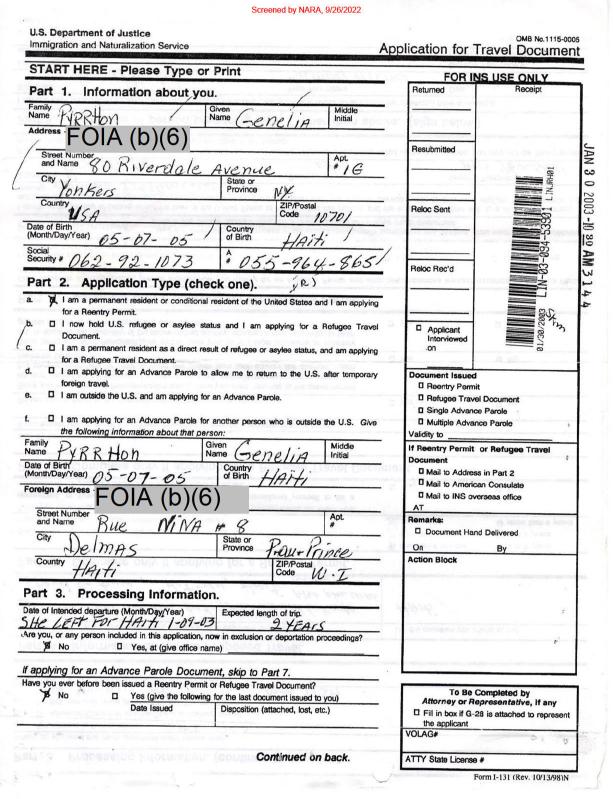 Screened by NARA, 9/26/2022
U.S. Department of Justice
Immigration and Naturalization Service
OMB No.1115-0005
Application for Travel Document
START HERE - Please Type or Print
Part 1. Information about you.
Family Name PYRRHon Given Name GeneliA Middle Initial
Address - FOIA (b)(6)
Street Number and Name 80 Riverdale Avenue Apt. # 1G
City Yonkers State or Province NY
Country USA ZIP/Postal Code 10701
Date of Birth (Month/Day/Year) 05-07-05 Country of Birth HAiti
Social Security # 062-92-1073 A # 055-964-865
Part 2. Application Type (check one).
a. I am a permanent resident or conditional resident of the United States and I am applying for a Reentry Permit.
b. I now hold U.S. refugee or asylee status and I am applying for a Refugee Travel Document.
c. I am a permanent resident as a direct result of refugee or asylee status, and am applying for a Refugee Travel Document.
d. I am applying for an Advance Parole to allow me to return to the U.S. after temporary foreign travel.
e. I am outside the U.S. and am applying for an Advance Parole.
f. I am applying for an Advance Parole for another person who is outside the U.S. Give the following information about that person:
Family Name PYRRHon Given Name GeneliA Middle Initial
Date of Birth (Month/Day/Year) 05-07-05 Country of Birth HAiti
Foreign Address - FOIA (b)(6)
Street Number and Name Rue NiNA # 8 Apt. #
City DelmAS State or Province P-au-Prince
Country HAiti ZIP/Postal Code W.I
Part 3. Processing Information.
Date of Intended departure (Month/Day/Year) SHe LEFT FOR HAiti 1-09-03 Expected length of trip. 2 YEARS
Are you, or any person included in this application, now in exclusion or deportation proceedings?
No Yes, at (give office name)
If applying for an Advance Parole Document, skip to Part 7.
Have you ever before been issued a Reentry Permit or Refugee Travel Document?
No Yes (give the following for the last document issued to you)
Date Issued Disposition (attached, lost, etc.)
Continued on back.
FOR INS USE ONLY
Returned Receipt
Resubmitted
Reloc Sent
Reloc Rec'd
Applicant Interviewed on
LIN-03-094-53901 LINJRH01
01/30/2003
JAN 30 2003
AM 3144
Document Issued
Reentry Permit
Refugee Travel Document
Single Advance Parole
Multiple Advance Parole
Validity to
If Reentry Permit or Refugee Travel Document
Mail to Address in Part 2
Mail to American Consulate
Mail to INS overseas office
AT
Remarks:
Document Hand Delivered
On By
Action Block
To Be Completed by
Attorney or Representative, if any
Fill in box if G-28 is attached to represent the applicant
VOLAG#
ATTY State License #
Form I-131 (Rev. 10/13/98)N